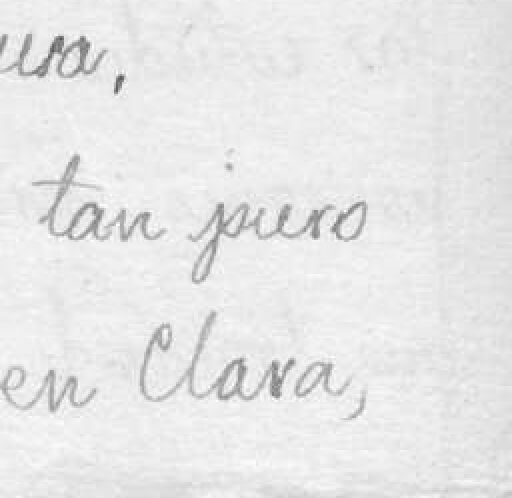 ura,
tan puro
en Clara,